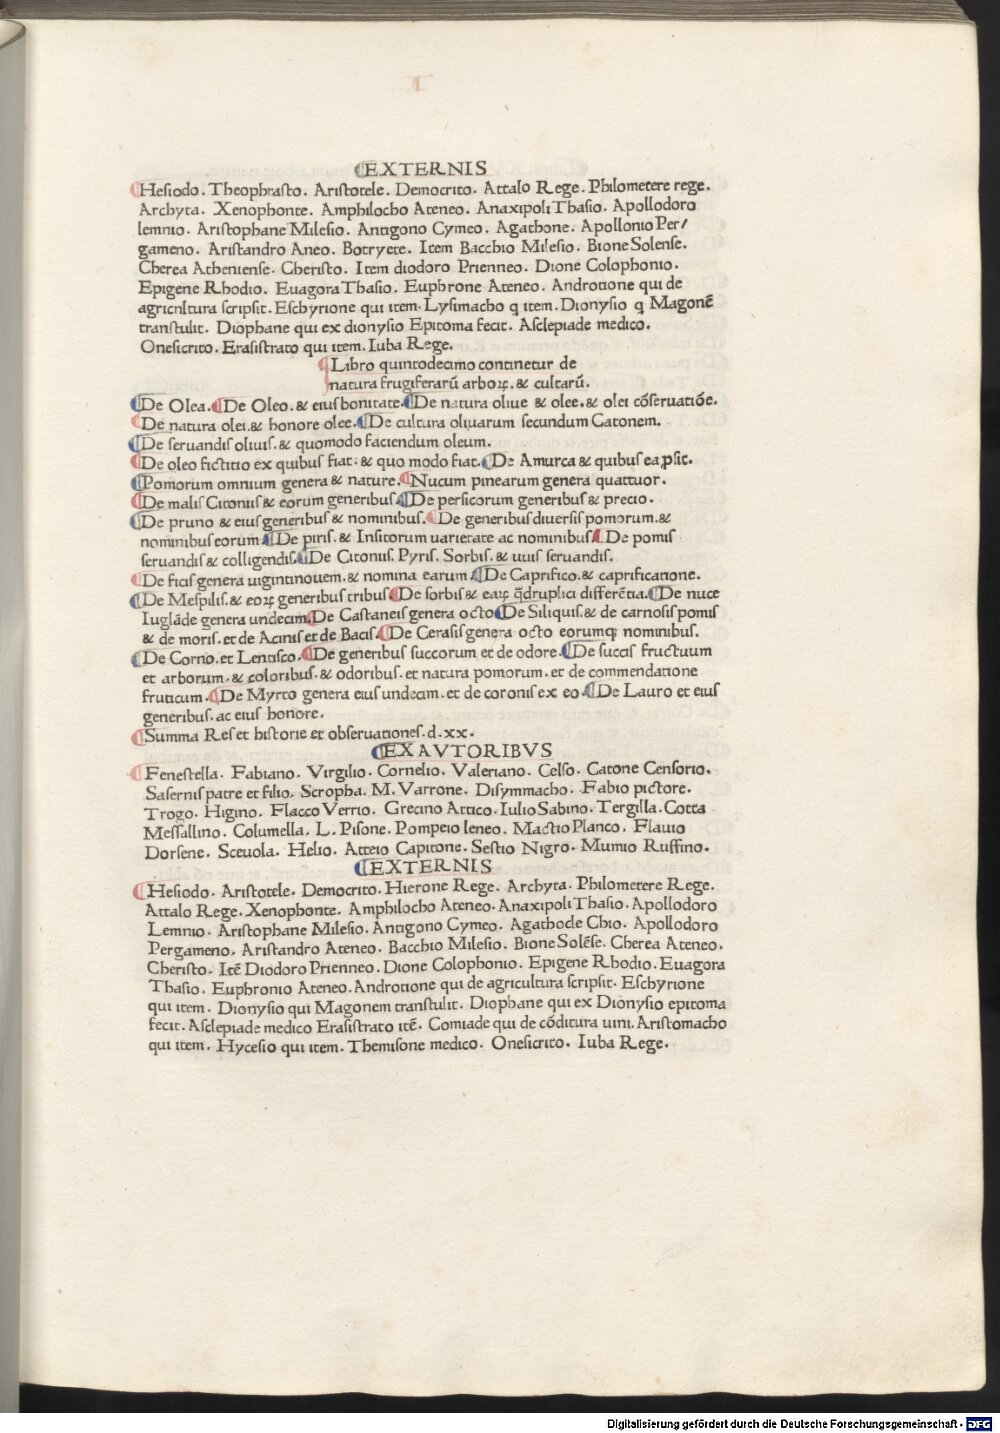 I
EXTERNIS
Hesiodo. Theophrasto. Aristotele. Democrito. Attalo Rege. Philometere rege.
Archyta. Xenophonte. Amphilocho Ateneo. Anaxipoli Thasio. Apollodoro
lemnio. Aristophane Milesio. Antigono Cymeo. Agathone. Apollonio Per/
gameno. Aristandro Aneo. Botryete. Item Bacchio Milesio. Bione Solense.
Cherea Atheniense. Cheristo. Item diodoro Prienneo. Dione Colophonio.
Epigene Rhodio. Euagora Thasio. Euphrone Ateneo. Androtione qui de
agricnltura scripsit. Eschyrione qui item. Lysimacho q item. Dionysio q Magonē
transtulit. Diophane qui ex dionysio Epitoma fecit. Asclepiade medico.
Onesicrito. Erasistrato qui item. Iuba Rege.
Libro quintodecimo continetur de
natura frugiferarū arboꝝ. & cultarū.
De Olea. De Oleo. & eius bonitate. De natura oliue & olee. & olei cōseruatiōe.
De natura olei. & honore olee. De cultura oliuarum secundum Catonem.
De seruandis oliuis. & quomodo faciendum oleum.
De oleo fictitio ex quibus fiat: & quo modo fiat. De Amurca & quibus ea ꝓsit.
Pomorum omnium genera & nature. Nucum pinearum genera quattuor.
De malis Citoniis & eorum generibus. De persicorum generibus & precio.
De pruno & eius generibus & nominibus. De generibus diuersis pomorum. &
nominibus eorum. De piris. & Insitorum uarietate ac nominibus. De pomis
seruandis & colligendis. De Citoniis. Pyris. Sorbis. & uuis seruandis.
De ficis genera uigintinouem. & nomina earum. De Caprifico. & caprificatione.
De Mespilis. & eoꝝ generibus tribus. De sorbis & eaꝝ q̄druplici differētia. De nuce
Iuglāde genera undecim. De Castaneis genera octo. De Siliquis. & de carnosis pomis
& de moris. et de Acinis et de Bacis. De Cerasis genera octo eorumq; nominibus.
De Corno. et Lentisco. De generibus succorum et de odore. De succis fructuum
et arborum. & coloribus. & odoribus. et natura pomorum. et de commendatione
fruticum. De Myrto genera eius undecim. et de coronis ex eo. De Lauro et eius
generibus. ac eius honore.
Summa Res et historie et obseruationes. d.xx.
EX AVTORIBVS
Fenestella. Fabiano. Virgilio. Cornelio. Valeriano. Celso. Catone Censorio.
Sasernis patre et filio. Scropha. M. Varrone. Disymmacho. Fabio pictore.
Trogo. Higino. Flacco Verrio. Grecino Attico. Iulio Sabino. Tergilla. Cotta
Messallino. Columella. L. Pisone. Pompeio leneo. Mactio Planco. Flauio
Dorsene. Sceuola. Helio. Atteio Capitone. Sestio Nigro. Mumio Ruffino.
EXTERNIS
Hesiodo. Aristotele. Democrito. Hierone Rege. Archyta. Philometere Rege.
Attalo Rege. Xenophonte. Amphilocho Ateneo. Anaxipoli Thasio. Apollodoro
Lemnio. Aristophane Milesio. Antigono Cymeo. Agathode Chio. Apollodoro
Pergameno. Aristandro Ateneo. Bacchio Milesio. Bione Solēse. Cherea Ateneo.
Cheristo. Itē Diodoro Prienneo. Dione Colophonio. Epigene Rhodio. Euagora
Thasio. Euphronio Ateneo. Androtione qui de agricultura scripsit. Eschyrione
qui item. Dionysio qui Magonem transtulit. Diophane qui ex Dionysio epitoma
fecit. Asclepiade medico Erasistrato itē. Comiade qui de cōditura uini. Aristomacho
qui item. Hycesio qui item. Themisone medico. Onesicrito. Iuba Rege.
Digitalisierung gefördert durch die Deutsche Forschungsgemeinschaft - DFG